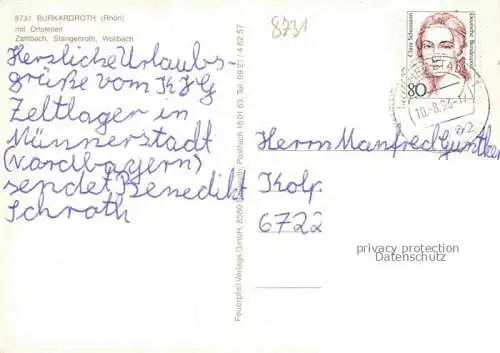 8731 BURKARDROTH (Rhön)
mit Ortsteilen
Zahlbach, Stangenroth, Wollbach
8731
Herzliche Urlaubs-
grüße vom KJG
Zeltlager in
Münnerstadt
(Nordbayern)
sendet Benedikt
Schroth
Feuerpfeil Verlags GmbH, 8580 Bayreuth, Postfach 16 01 63, Tel. 09 21 / 4 62 57
Clara Schumann
Deutsche Bundespost
80
10.-8.94
Herrn Manfred Günther
Kolp.
6722
privacy protection
Datenschutz